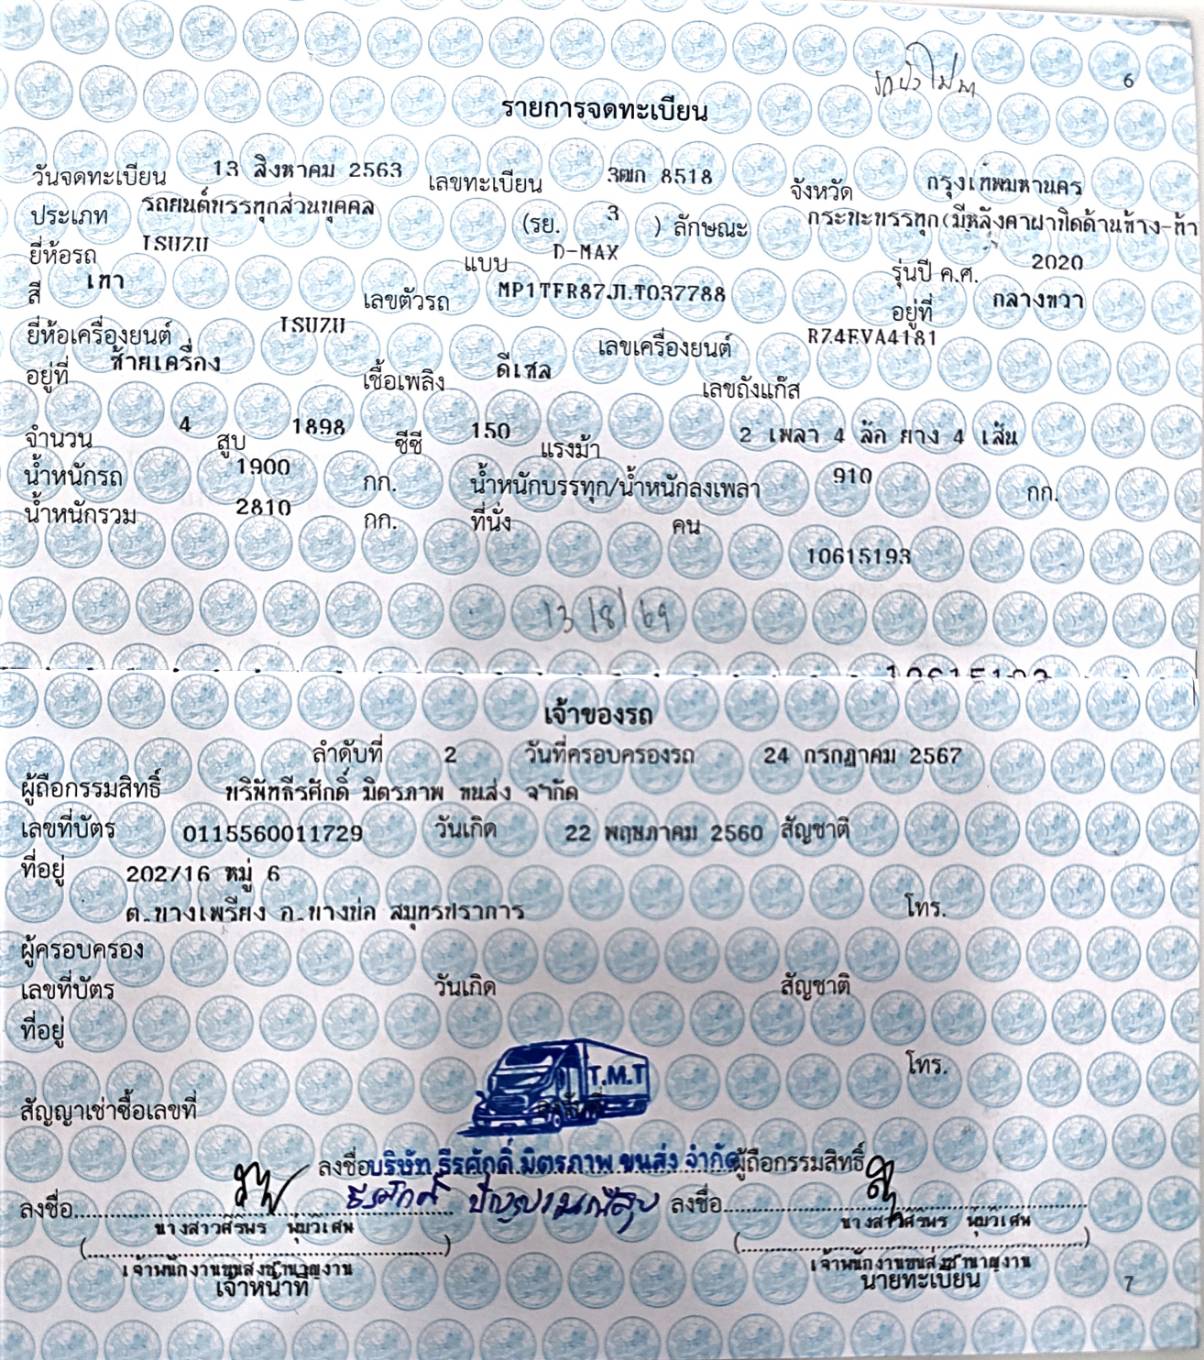 6
รายการจดทะเบียน
วันจดทะเบียน 13 สิงหาคม 2563 เลขทะเบียน 3ฒก 8518 จังหวัด กรุงเทพมหานคร
ประเภท รถยนต์บรรทุกส่วนบุคคล (รย. 3 ) ลักษณะ กระบะบรรทุก(มีหลังคาฝาปิดด้านข้าง-ท้า
ยี่ห้อรถ ISUZU แบบ D-MAX รุ่นปี ค.ศ. 2020
สี เทา เลขตัวรถ MP1TFR87JLT037788 อยู่ที่ กลางขวา
ยี่ห้อเครื่องยนต์ ISUZU เลขเครื่องยนต์ RZ4EVA4181
อยู่ที่ ซ้ายเครื่อง เชื้อเพลิง ดีเซล เลขถังแก๊ส
จำนวน 4 สูบ 1898 ซีซี 150 แรงม้า 2 เพลา 4 ล้อ ยาง 4 เส้น
น้ำหนักรถ 1900 กก. น้ำหนักบรรทุก/น้ำหนักลงเพลา 910 กก.
น้ำหนักรวม 2810 กก. ที่นั่ง คน
10615193
13/8/69
10615193
เจ้าของรถ
ลำดับที่ 2 วันที่ครอบครองรถ 24 กรกฎาคม 2567
ผู้ถือกรรมสิทธิ์ บริษัทธีรศักดิ์ มิตรภาพ ขนส่ง จำกัด
เลขที่บัตร 0115560011729 วันเกิด 22 พฤษภาคม 2560 สัญชาติ
ที่อยู่ 202/16 หมู่ 6
ต.บางเพรียง อ.บางบ่อ สมุทรปราการ โทร.
ผู้ครอบครอง
เลขที่บัตร วันเกิด สัญชาติ
ที่อยู่
โทร.
T.M.T
สัญญาเช่าซื้อเลขที่
ลงชื่อ บริษัท ธีรศักดิ์ มิตรภาพ ขนส่ง จำกัด ผู้ถือกรรมสิทธิ์
ลงชื่อ ธีรศักดิ์ ลงชื่อ
นางสาวศิริพร พุ่มวิเศษ นางสาวศิริพร พุ่มวิเศษ
เจ้าพนักงานขนส่งชำนาญงาน เจ้าพนักงานขนส่งชำนาญงาน
เจ้าหน้าที่ นายทะเบียน 7